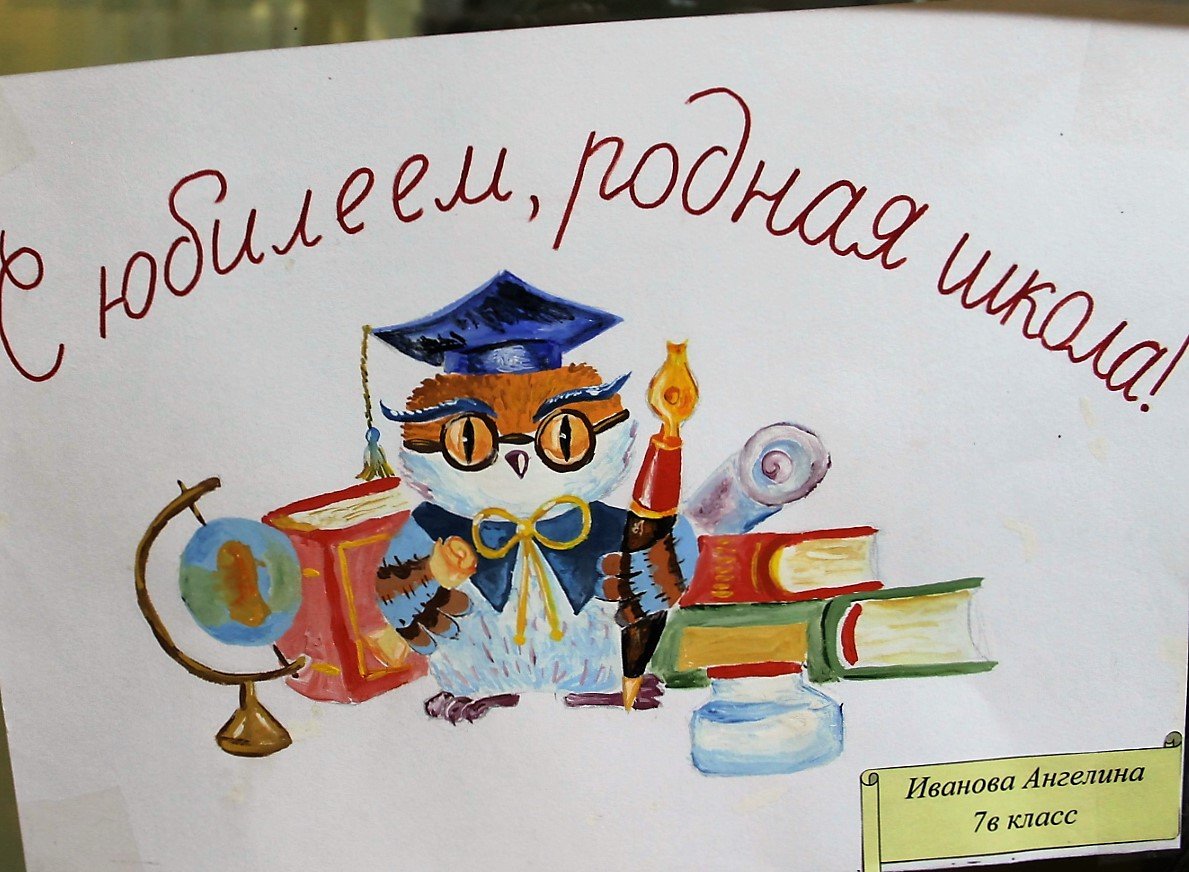 С юбилеем, родная школа!
Иванова Ангелина
7в класс